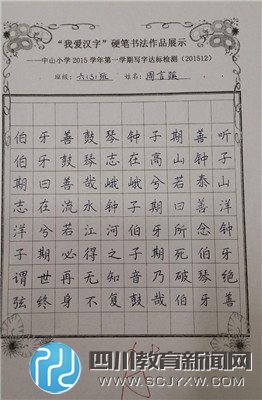 “我爱汉字”硬笔书法作品展示
——中山小学2015学年第一学期写字达标检测（201512）
班级：六(3)班 姓名：周言蹊
伯牙善鼓琴钟子期善听
伯牙鼓琴志在高山钟子
期曰善哉峨峨兮若泰山
志在流水钟子期曰善洋
洋兮若江河伯牙所念钟
子期必得之子期死伯牙
谓世再无知音乃破琴绝
弦终身不复鼓哉伯牙善
四川教育新闻网
WWW.SCJYXW.COM